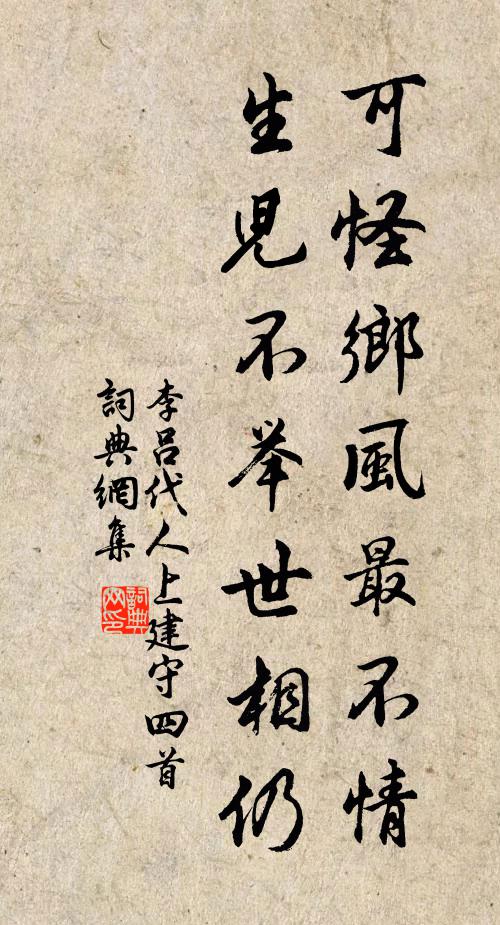 可怪鄉風最不情
生兒不举世相仍
李吕代人上建守四首
詞典網集
詞典網印